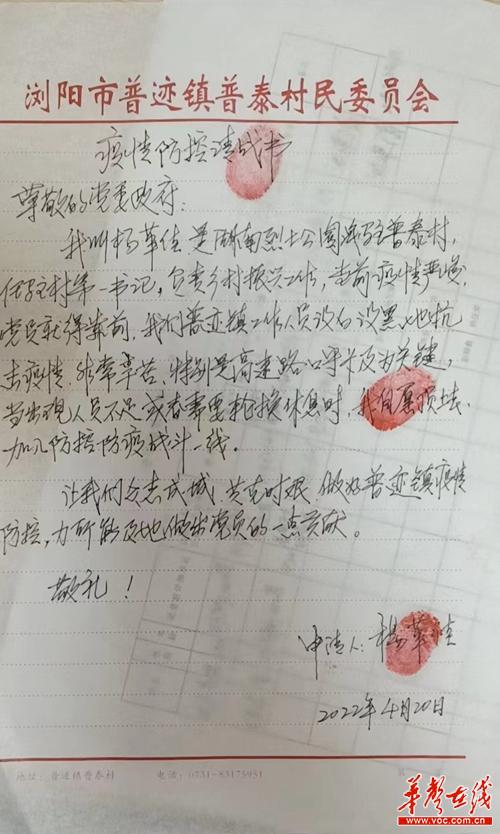 浏阳市普迹镇普泰村民委员会
疫情防控请战书
尊敬的党委政府：
我叫杨革佳是湖南烈士公园派驻普泰村，
任驻村第一书记，负责乡村振兴工作，当前疫情严峻，
党员就得靠前，我们普迹镇工作人员没白没黑地抗
击疫情，非常辛苦，特别是高速路口卡口及为关键，
当出现人员不足或者需要轮换休息时，我自愿顶上，
加入防控防疫战斗一线。
让我们众志成城，共克时艰，做好普迹镇疫情
防控，力所能及地做出党员的一点贡献。
敬礼！
申请人：杨革佳
2022年4月20日
地址：普迹镇普泰村 电话：0731-83175931
华声在线
www.voc.com.cn